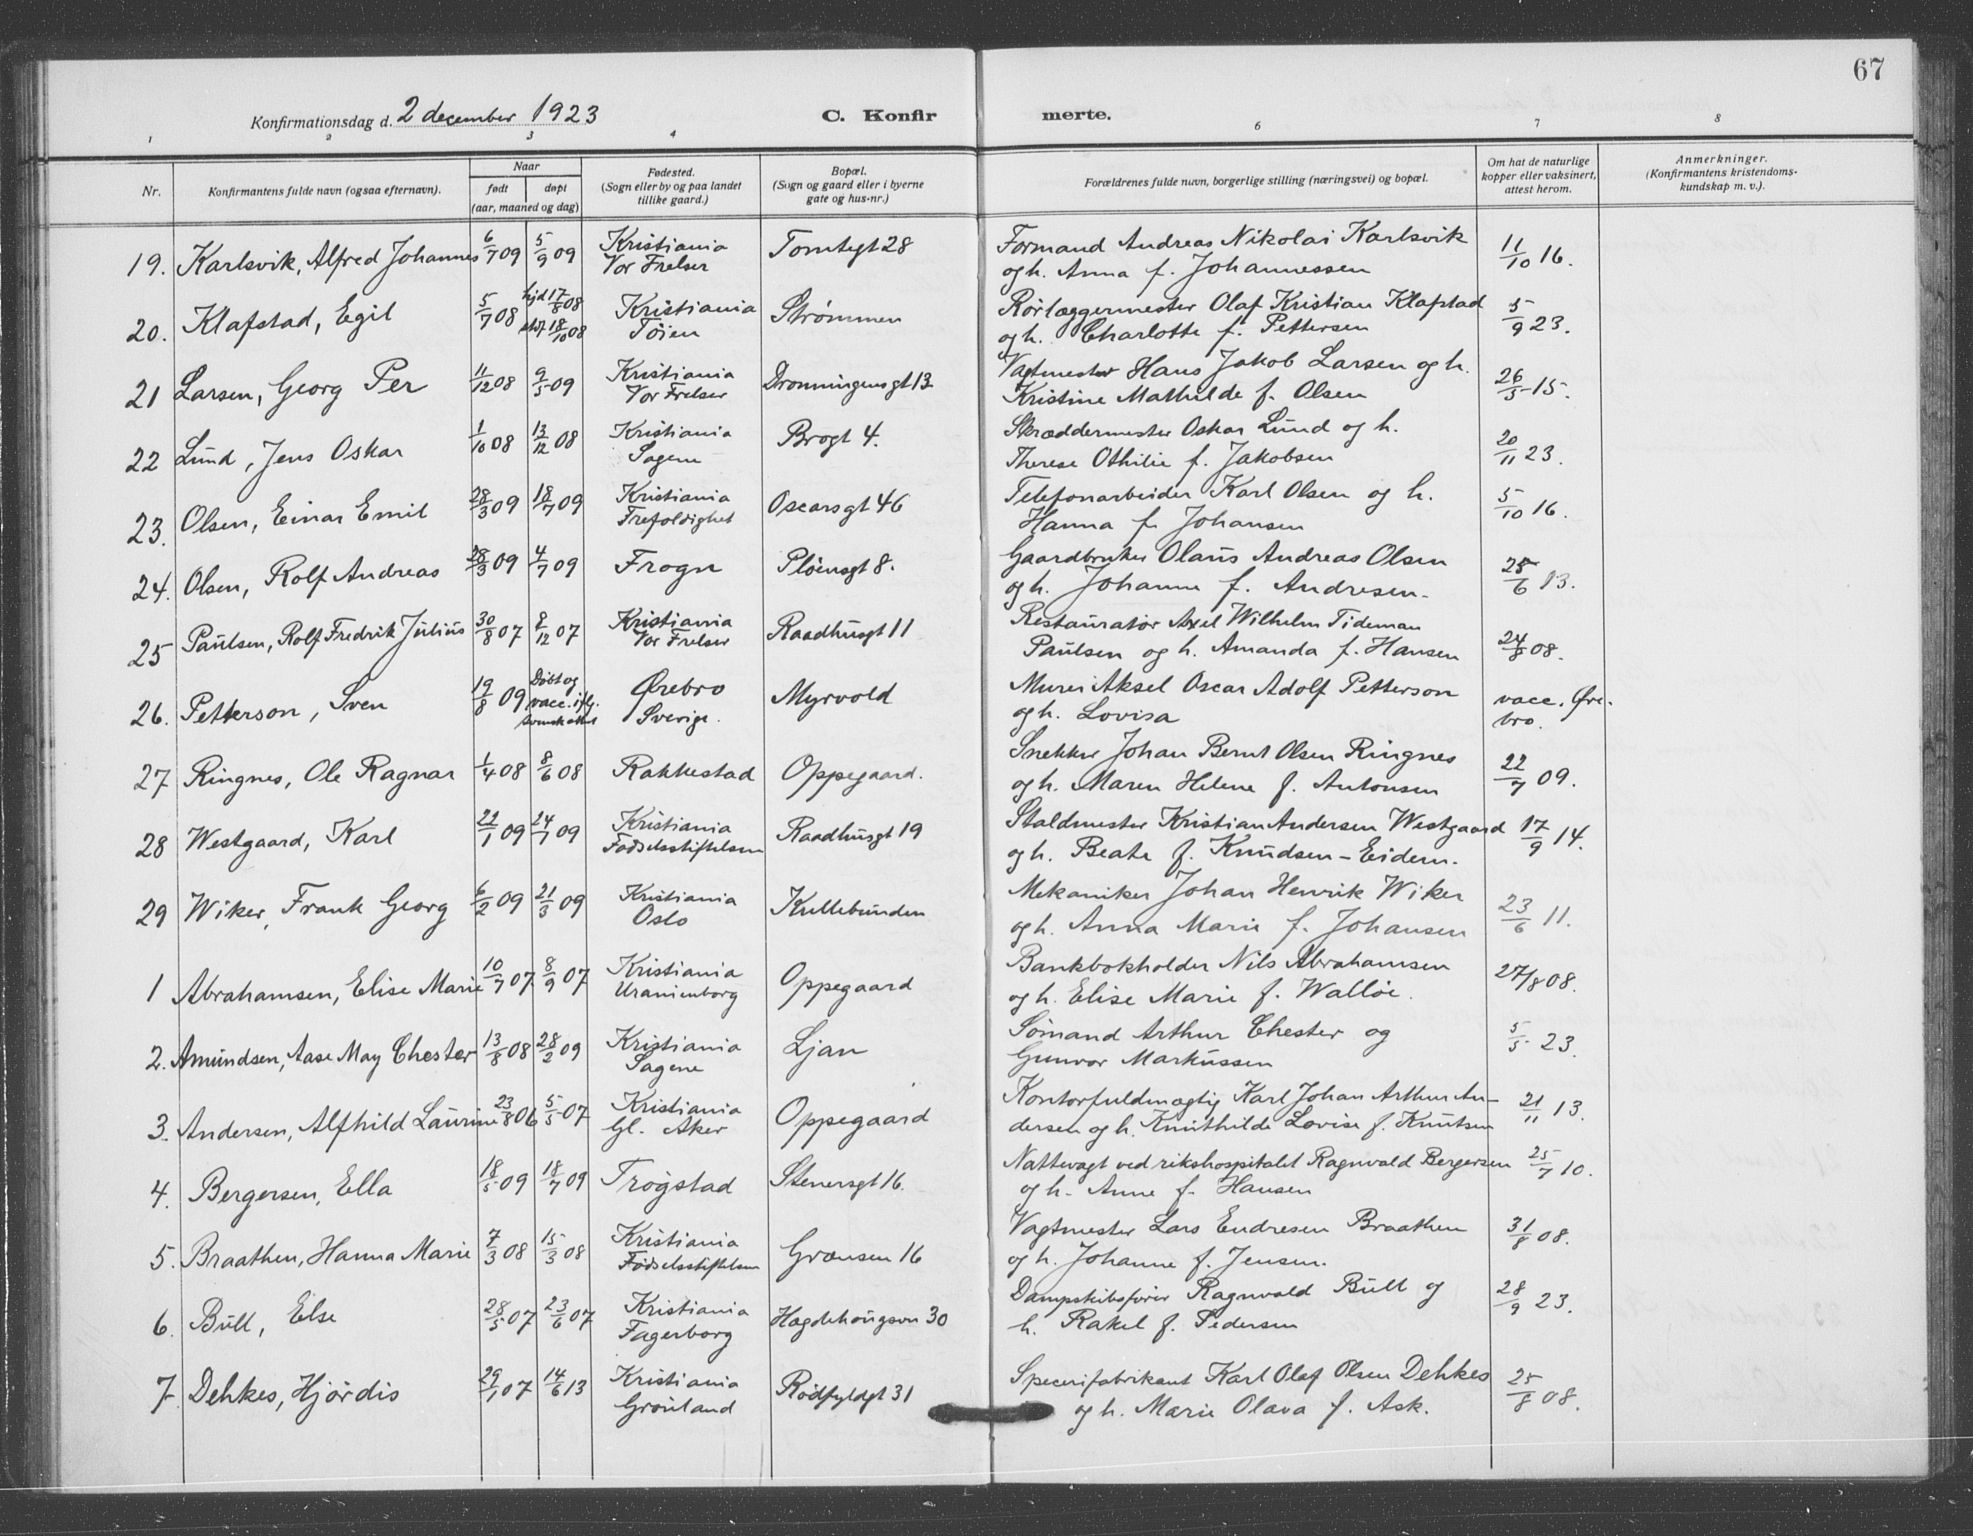 67
Konfirmationsdag d. 2 december 1923
C. Konfirmerte.
1 2 3 4 6 7 8
Nr.
Konfirmantens fulde navn (ogsaa efternavn).
Naar
født døpt
(aar, maaned og dag)
Fødested.
(Sogn eller by og paa landet
tillike gaard.)
Bopæl.
(Sogn og gaard eller i byerne
gate og hus-nr.)
Forældrenes fulde navn, borgerlige stilling (næringsvei) og bopæl.
Om hat de naturlige
kopper eller vaksinert,
attest herom.
Anmerkninger.
(Konfirmantens kristendoms-
kundskap m. v.).
19. Karlsvik, Alfred Johannes 6/7 09 5/9 09 Kristiania Vor Frelser Tomtegt 28 Formand Andreas Nikolai Karlsvik 11/10 16.
og h. Anna f. Johannessen
20. Klafstad, Egil 5/7 08 hjd 17/8 08 stdf 18/10 08 Kristiania Tøien Strømmen Rørlæggermester Olaf Kristian Klafstad 5/9 23.
og h. Charlotte f. Pettersen
21 Larsen, Georg Per 11/12 08 9/5 09 Kristiania Vor Frelser Dronningensgt 13 Vagtmester Hans Jakob Larsen og h. 26/5 15.
Kristine Mathilde f. Olsen
22 Lund, Jens Oskar 1/10 08 13/12 08 Kristiania Sagene Brogt 4. Skræddermester Oskar Lund og h. 20/11 23.
Therese Othilie f. Jakobsen
23. Olsen, Einar Emil 28/3 09 18/7 09 Kristiania Trefoldighet Oscarsgt 46 Telefonarbeider Karl Olsen og h. 5/10 16.
Hanna f. Johansen
24. Olsen, Rolf Andreas 28/3 09 4/7 09 Frogn Pløensgt 8. Gaardbruker Olaus Andreas Olsen 28/6 13.
og h. Johanne f. Andresen.
25 Paulsen, Rolf Fredrik Julius 30/8 07 8/12 07 Kristiania Vor Frelser Raadhusgt 11 Restauratør Axel Wilhelm Tideman 24/8 08.
Paulsen og h. Amanda f. Hansen
26. Petterson, Sven 19/8 09 Døbt og vacc. iflg. svensk attest Ørebro Sverige. Myrvold Murer Aksel Oscar Adolf Petterson vacc. Øre-
og h. Lovisa bro.
27 Ringnes, Ole Ragnar 1/4 08 8/6 08 Rakkestad Oppegaard. Snekker Johan Bernt Olsen Ringnes 22/7 09.
og h. Maren Helene f. Antonsen
28 Westgaard, Karl 22/1 09 24/7 09 Kristiania Fødselsstiftelsen Raadhusgt 19 Staldmester Kristian Andersen Westgaard 17/9 14.
og h. Beate f. Knudsen-Eidem.
29 Wiker, Frank Georg 6/2 09 21/3 09 Kristiania Oslo Kullebunden Mekaniker Johan Henrik Wiker 23/6 11.
og h. Anna Marie f. Johansen
1 Abrahamsen, Elise Marie 10/7 07 8/9 07 Kristiania Uranienborg Oppegaard Bankbokholder Nils Abrahamsen 27/8 08.
og h. Elise Marie f. Walløe.
2. Amundsen, Aase May Chester 13/8 08 28/2 09 Kristiania Sagene Ljan Sømand Arthur Chester og 5/5 23.
Gunvor Markussen
3. Andersen, Alfhild Laurine 23/8 06 5/5 07 Kristiania Gl. Aker Oppegaard Kontorfuldmægtig Karl Johan Arthur An- 21/11 13.
dersen og h. Knuthilde Lovise f. Knutsen
4. Bergersen, Ella 18/5 09 18/7 09 Trøgstad Stenersgt 16. Nattevagt ved rikshospitalet Ragnvald Bergersen 25/7 10.
og h. Anne f. Hansen
5. Braathen, Hanna Marie 7/3 08 15/3 08 Kristiania Fødselsstiftelsen Grænsen 16 Vagtmester Lars Endresen Braathen 31/8 08.
og h. Johanne f. Jensen.
6. Bull, Else 28/5 07 23/6 07 Kristiania Fagerborg Hægdehougsvn 30 Dampskibsfører Ragnvald Bull og 28/9 23.
h. Rakel f. Pedersen
7. Dehkes, Hjørdis 29/1 07 14/6 13 Kristiania Grønland Rødfyldgt 31 Specerifabrikant Karl Olaf Olsen Dehkes 25/8 08.
og h. Marie Olava f. Ask.